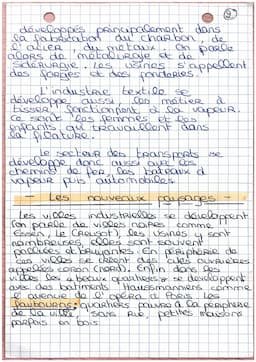 9
développés principalement dans
la fabrication du charbon, de
l'acier, du métaux. On parle
alors de métallurgie et de
sidérurgie. Les usines s'appellent
des forges et des fonderies.
L'industrie textile se
développe aussi, les métier à
tisser fonctionnent à la vapeur.
ce sont les femmes et les
enfants qui travaillent dans
la filature.
Le secteur des transports se
développe donc aussi avec les
chemins de fer, les bateaux à
vapeur puis automobiles
- Les nouveaux paysages -
Les villes industrielles se développent
(on parle de villes noires comme
Essen, Le Creusot), les usines y sont
nombreuses, elles sont souvent
polluées et bruyantes. En périphérie de
ces villes se créent des cités ouvrières
appelées coron (nord). Enfin dans les
villes les "beaux quartiers" se développent
avec des bâtiments Haussmanniens comme
l'avenue de l'opéra à Paris. Les
faubourgs: quartiers pauvre à la périphérie
de la ville, sans rue, petites maisons
parfois en bois